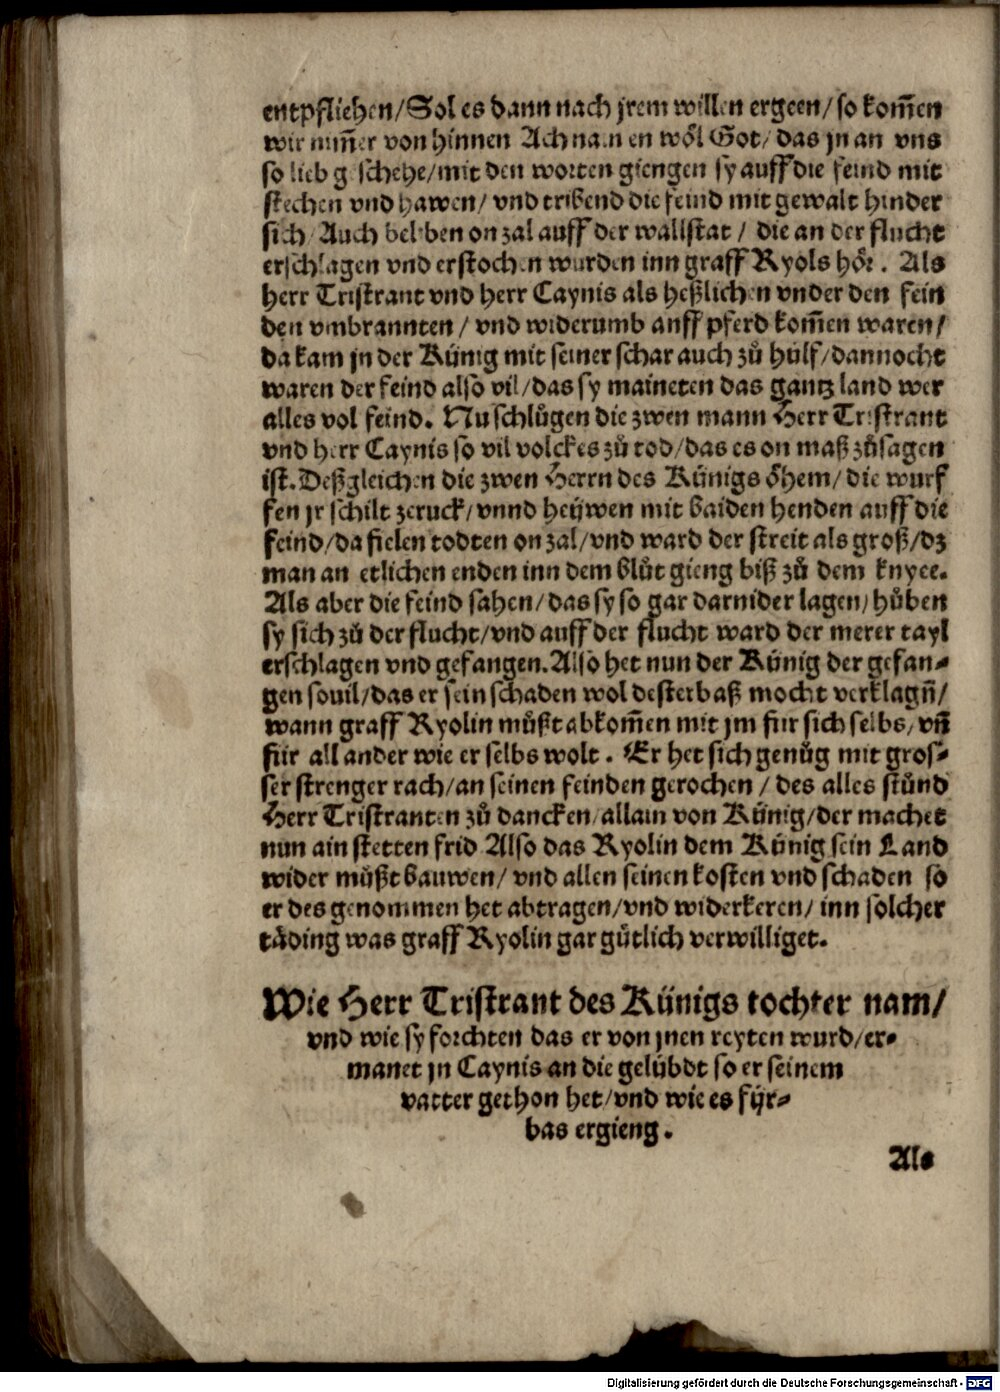 entpfliehen/Sol es dann nach jrem willen ergeen/so kom̃en
wir nim̃er von hinnen Ach nain en wöl Got/das jn an vns
so lieb geschehe/mit den worten giengen sy auff die feind mit
stechen vnd hawen/vnd tribend die feind mit gewalt hinder
sich/Auch beliben on zal auff der wallstat/die an der flucht
erschlagen vnd erstochen wurden inn graff Ryols hör. Als
herr Tristrant vnd herr Caynis als heßlichen vnder den fein
den vmbrannten/vnd widerumb auff pferd kom̃en waren/
da kam jn der Künig mit seiner schar auch zů hülf/dannocht
waren der feind also vil/das sy maineten das gantz land wer
alles vol feind. Nu schlůgen die zwen mann Herr Tristrant
vnd herr Caynis so vil volckes zů tod/das es on maß zůsagen
ist. Deßgleichen die zwen Herrn des Künigs öhem/die wurf
fen jr schilt zeruck/vnnd heÿwen mit baiden henden auff die
feind/da fielen todten on zal/vnd ward der streit als groß/dz
man an etlichen enden inn dem blůt gieng biß zů dem knyee.
Als aber die feind sahen/das sy so gar darnider lagen/hůben
sy sich zů der flucht/vnd auff der flucht ward der merer tayl
erschlagen vnd gefangen. Also het nun der Künig der gefan-
gen souil/das er sein schaden wol desterbaß mocht verklagñ/
wann graff Ryolin můßt abkom̃en mit jm für sich selbs/vñ
für all ander wie er selbs wolt. Er het sich genůg mit gros-
ser strenger rach/an seinen feinden gerochen/des alles stůnd
Herr Tristranten zů dancken/allain von Künig/der machet
nun ain stetten frid Also das Ryolin dem Künig sein Land
wider můßt bauwen/vnd allen seinen kosten vnd schaden so
er des genommen het abtragen/vnd widerkeren/inn solcher
täding was graff Ryolin gar gütlich verwilliget.
Wie Herr Tristrant des Künigs tochter nam/
vnd wie sy forchten das er von jnen reyten wurd/er-
manet jn Caynis an die gelübdt so er seinem
vatter gethon het/vnd wie es fÿr-
bas ergieng.
Als
Digitalisierung gefördert durch die Deutsche Forschungsgemeinschaft - DFG